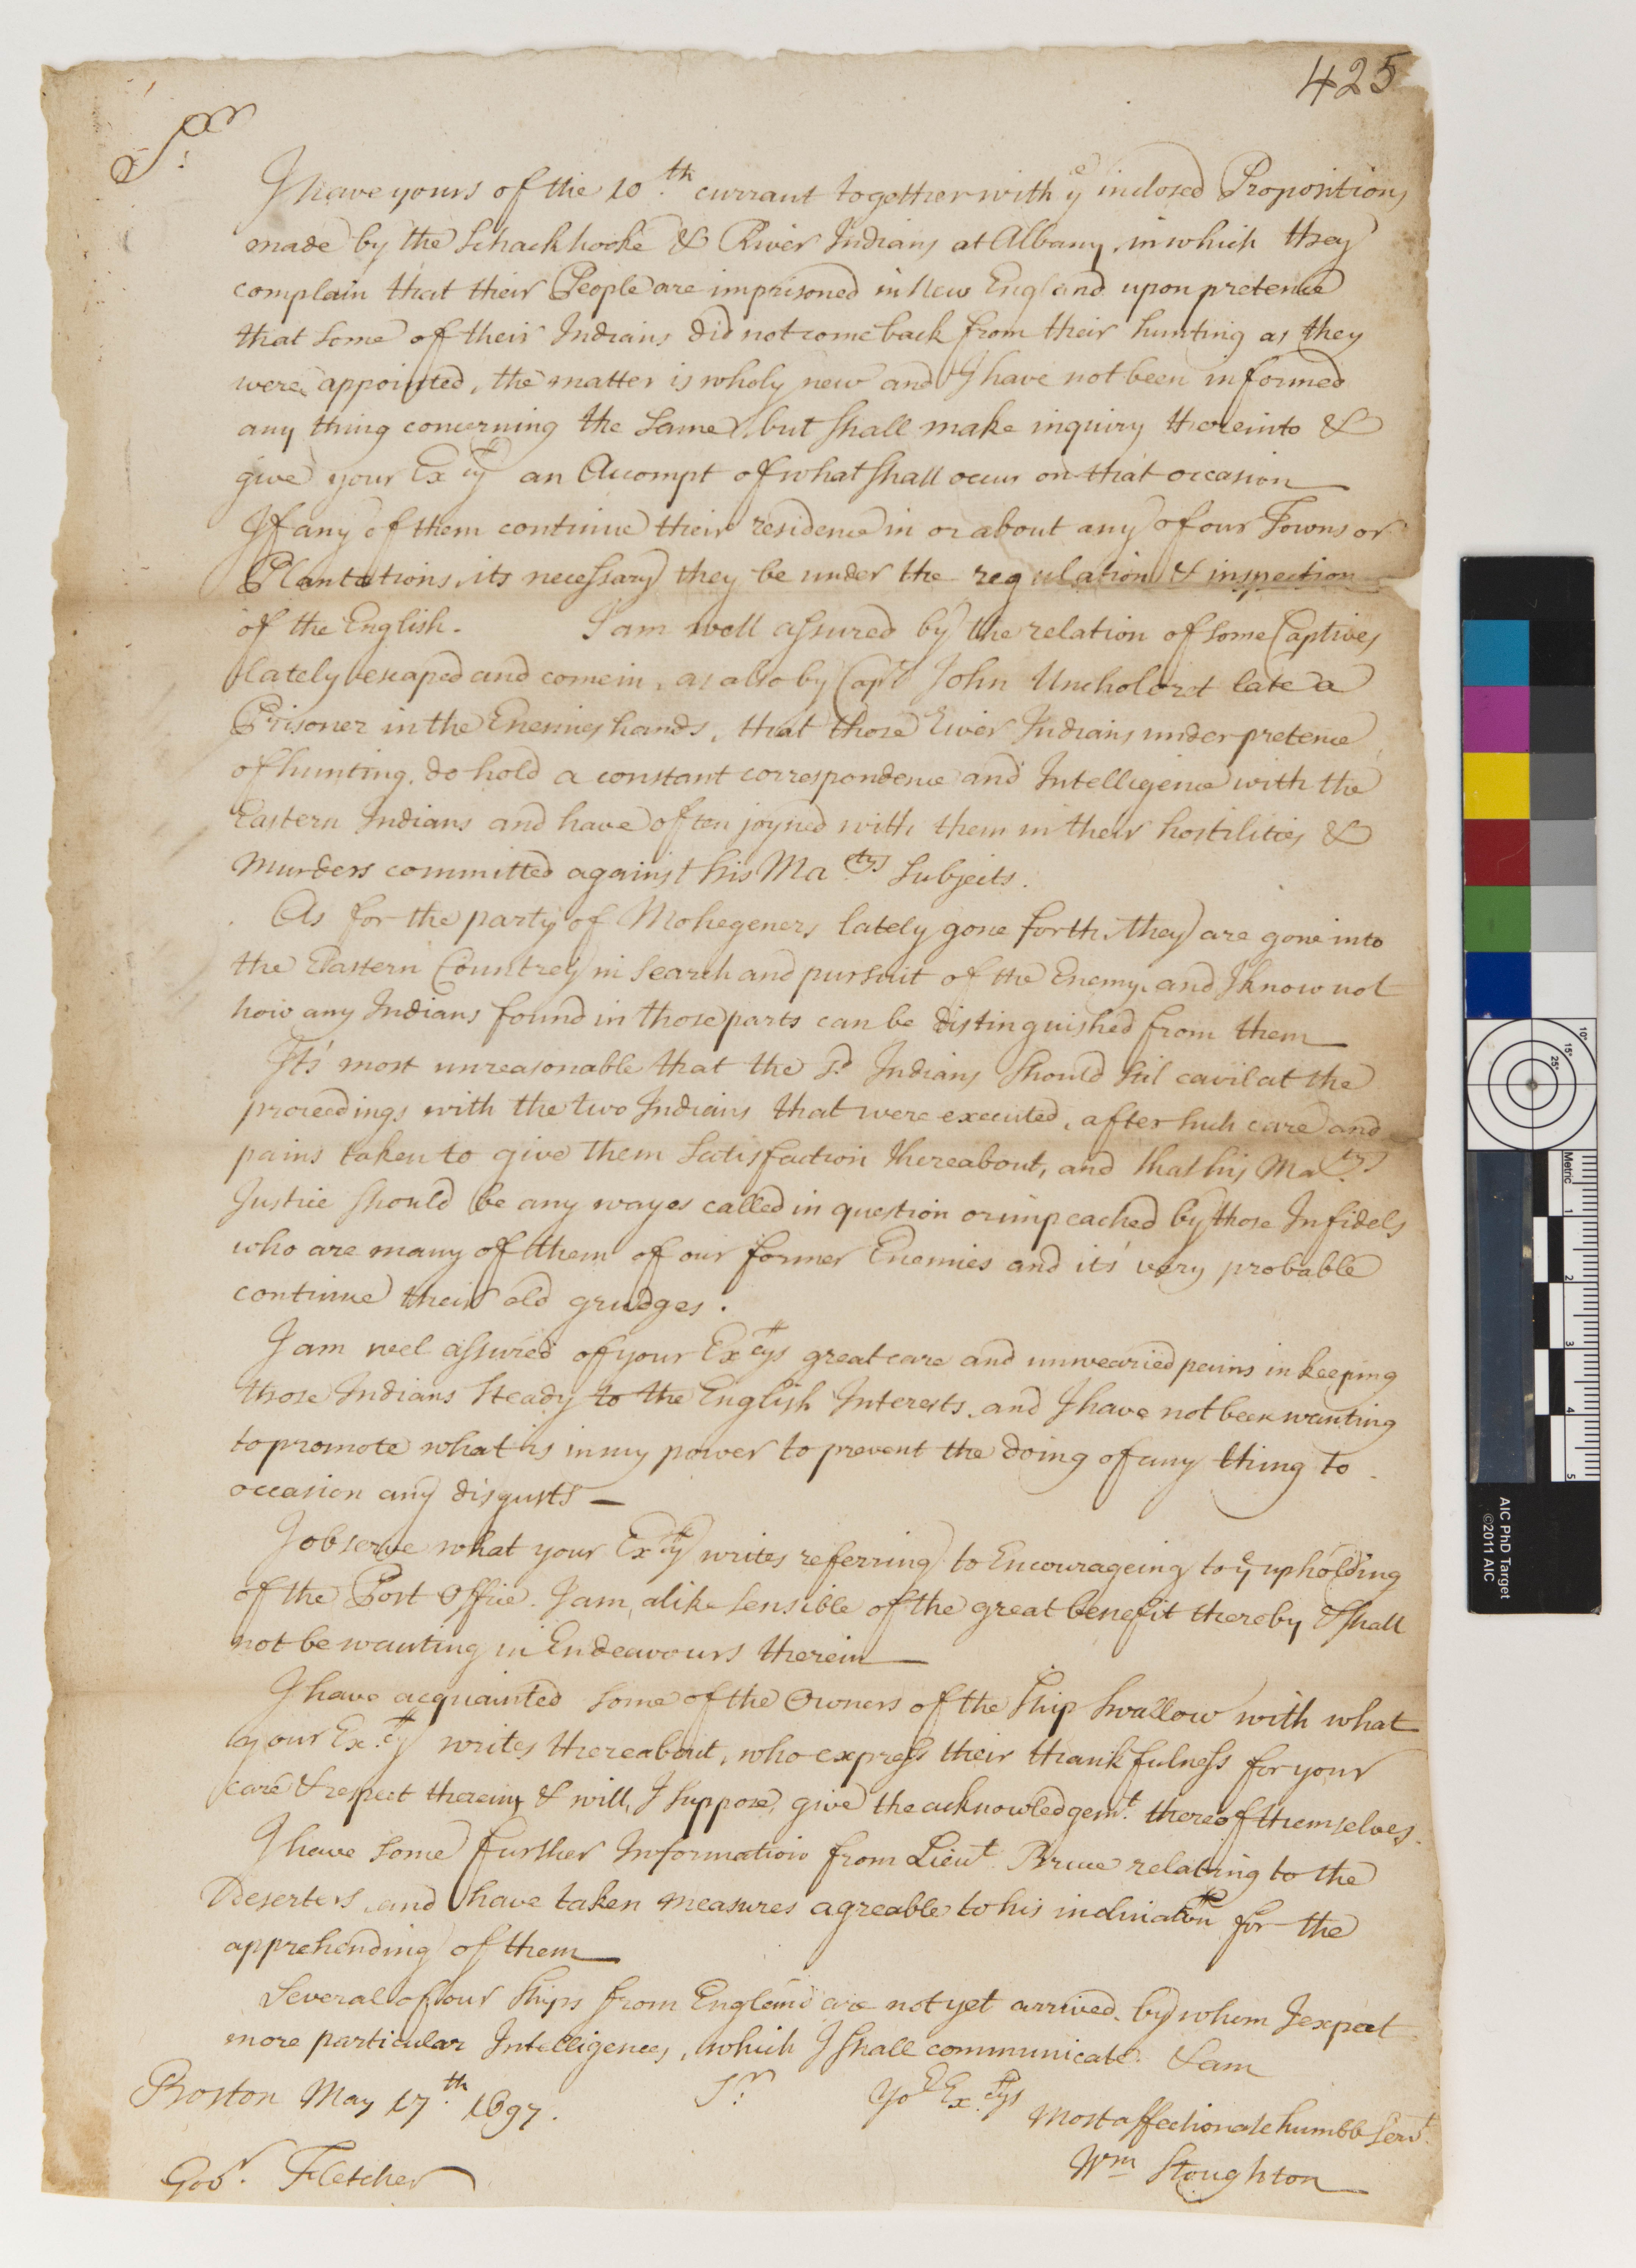 425
Sr.
I have yours of the 10.th currant together with ye inclosed Propositions
made by the Schackhooke & River Indians at Albany, in which they
complain that their People are imprisoned in New England upon pretence
that some of their Indians did not come back from their hunting as they
were appointed, the matter is wholy new and I have not been informed
any thing concerning the same, but shall make inquiry thereinto &
give your Excty an Accompt of what shall occur on that occasion
If any of them continue their residence in or about any of our Towns or
Plantations, its necessary they be under the regulation & inspection
of the English. I am well assured by the relation of some Captives
lately escaped and come in, as also by Capt John
late a
Prisoner in the Enemies hands, that those River Indians under pretence
of hunting, do hold a constant correspondence and Intelligence with the
Eastern Indians and have often joyned with them in their hostilities &
Murders committed against his Ma.tys Subjects.
As for the party of Mohegeners lately gone forth, they are gone into
the Eastern Countrey in search and pursuit of the Enemy, and I know not
how any Indians found in those parts can be distinguished from them
It's most unreasonable that the sd. Indians should stil cavil at the
proceedings with the two Indians that were executed, after such care and
pains taken to give them Satisfaction thereabout, and that his Ma.tys
Justice should be any wayes called in question or impeached by those Infidels
who are many of them of our former Enemies and it's very probable
continue their old grudges.
I am wel assured of your Exctys great care and unwearied pains in keeping
those Indians steady to the English Interests, and I have not been wanting
to promote what is in my power to prevent the doing of any thing to
occasion any disgusts
I observe what your Excty writes referring to Encourageing to ye upholding
of the Post Office. I am alike sensible of the great benefit thereby & shall
not be wanting in Endeavours therein
I have acquainted some of the Owners of the Ship Swallow with what
your Ex.cty writes thereabout, who express their thankfulness for your
care & respect therein, & will, I suppose, give the acknowledgemt. thereof themselves.
I have some further Information from Lieut. Bruce relating to the
Deserters, and have taken measures agreable to his inclination for the
apprehending of them
Several of our Ships from England are not yet arrived, by whom I expect
more particular Intelligences, which I shall communicate. & am
Sr. Yor Ex.ctys
Boston May 17.th 1697. Most affectionate humble Servt.
Govr. Fletcher Wm Stoughton
AIC PhD Target
©2011 AIC
Metric
1
2
3
4
5
10°
15°
25°